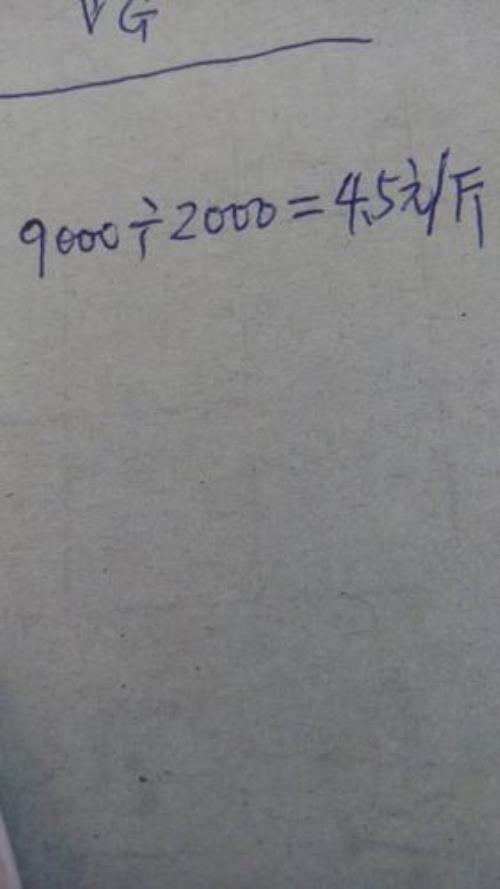 VG
9000÷2000=4.5元/斤